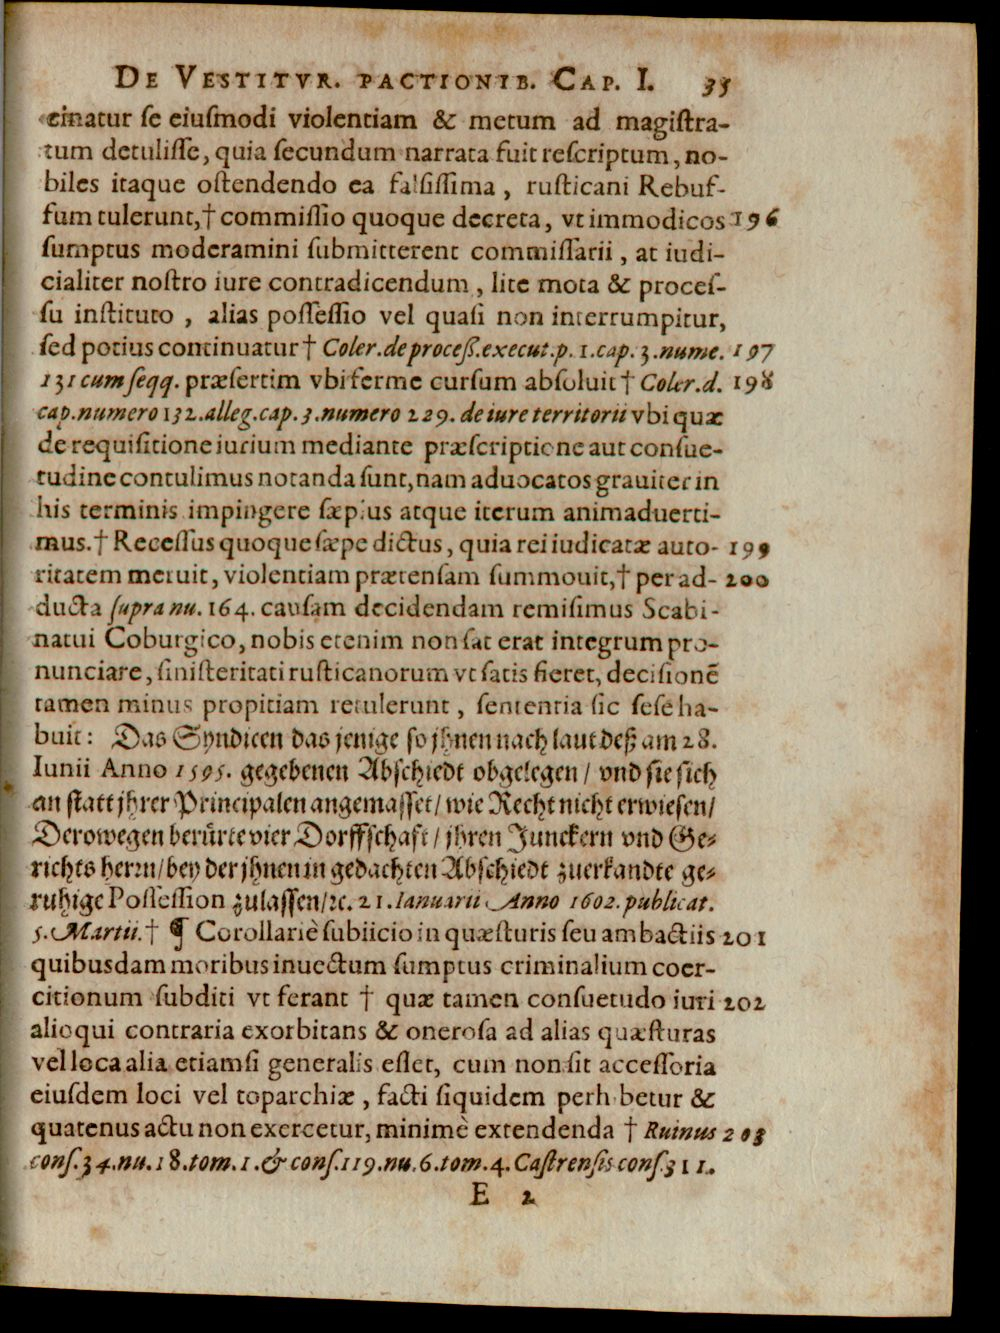 DE VESTITVR. PACTIONIB. CAP. I. 35
cinatur se eiusmodi violentiam & metum ad magistra-
tum detulisse, quia secundum narrata fuit rescriptum, no-
biles itaque ostendendo ea falsissima, rusticani Rebuf-
fum tulerunt,† commissio quoque decreta, vt immodicos 196
sumptus moderamini submitterent commissarii, at iudi-
cialiter nostro iure contradicendum, lite mota & proces-
su instituto, alias possessio vel quasi non interrumpitur,
sed potius continuatur † Coler. de proceß. execut. p. 1. cap. 3. nume. 197
131 cum seqq. præsertim vbi ferme cursum absoluit † Coler. d. 198
cap. numero 132. alleg. cap. 3. numero 229. de iure territorii vbi quæ
de requisitione iurium mediante præscriptione aut consue-
tudine contulimus notanda sunt, nam aduocatos grauiter in
his terminis impingere sæpius atque iterum animaduerti-
mus.† Recessus quoque sæpe dictus, quia rei iudicatæ auto- 199
ritatem meruit, violentiam prætensam summouit,† per ad- 200
ducta supra nu. 164. causam decidendam remisimus Scabi-
natui Coburgico, nobis etenim non sat erat integrum pro-
nunciare, sinisteritati rusticanorum vt satis fieret, decisionē
tamen minus propitiam retulerunt, sententia sic sese ha-
buit: Das Syndicen das jenige so jhnen nach laut deß am 28.
Iunii Anno 1595. gegebenen Abschiedt obgelegen / vnd sie sich
an statt jhrer Principalen angemasset / wie Recht nicht erwiesen /
Derowegen berůrte vier Dorffschaft / jhren Junckern vnd Ge-
richts herrn / bey der jhnen in gedachten Abschiedt zuerkandte ge-
ruhige Possession zulassen / ꝛc. 21. Ianuarii Anno 1602. publicat.
5. Martii.† ¶ Corollariè subiicio in quæsturis seu ambactiis 201
quibusdam moribus inuectum sumptus criminalium coer-
citionum subditi vt ferant † quæ tamen consuetudo iuri 202
alioqui contraria exorbitans & onerosa ad alias quæsturas
vel loca alia etiamsi generalis esset, cum non sit accessoria
eiusdem loci vel toparchiæ, facti siquidem perhibetur &
quatenus actu non exercetur, minimè extendenda † Ruinus 203
cons. 34. nu. 18. tom. 1. & cons. 119. nu. 6. tom. 4. Castrensis cons. 311.
E 2